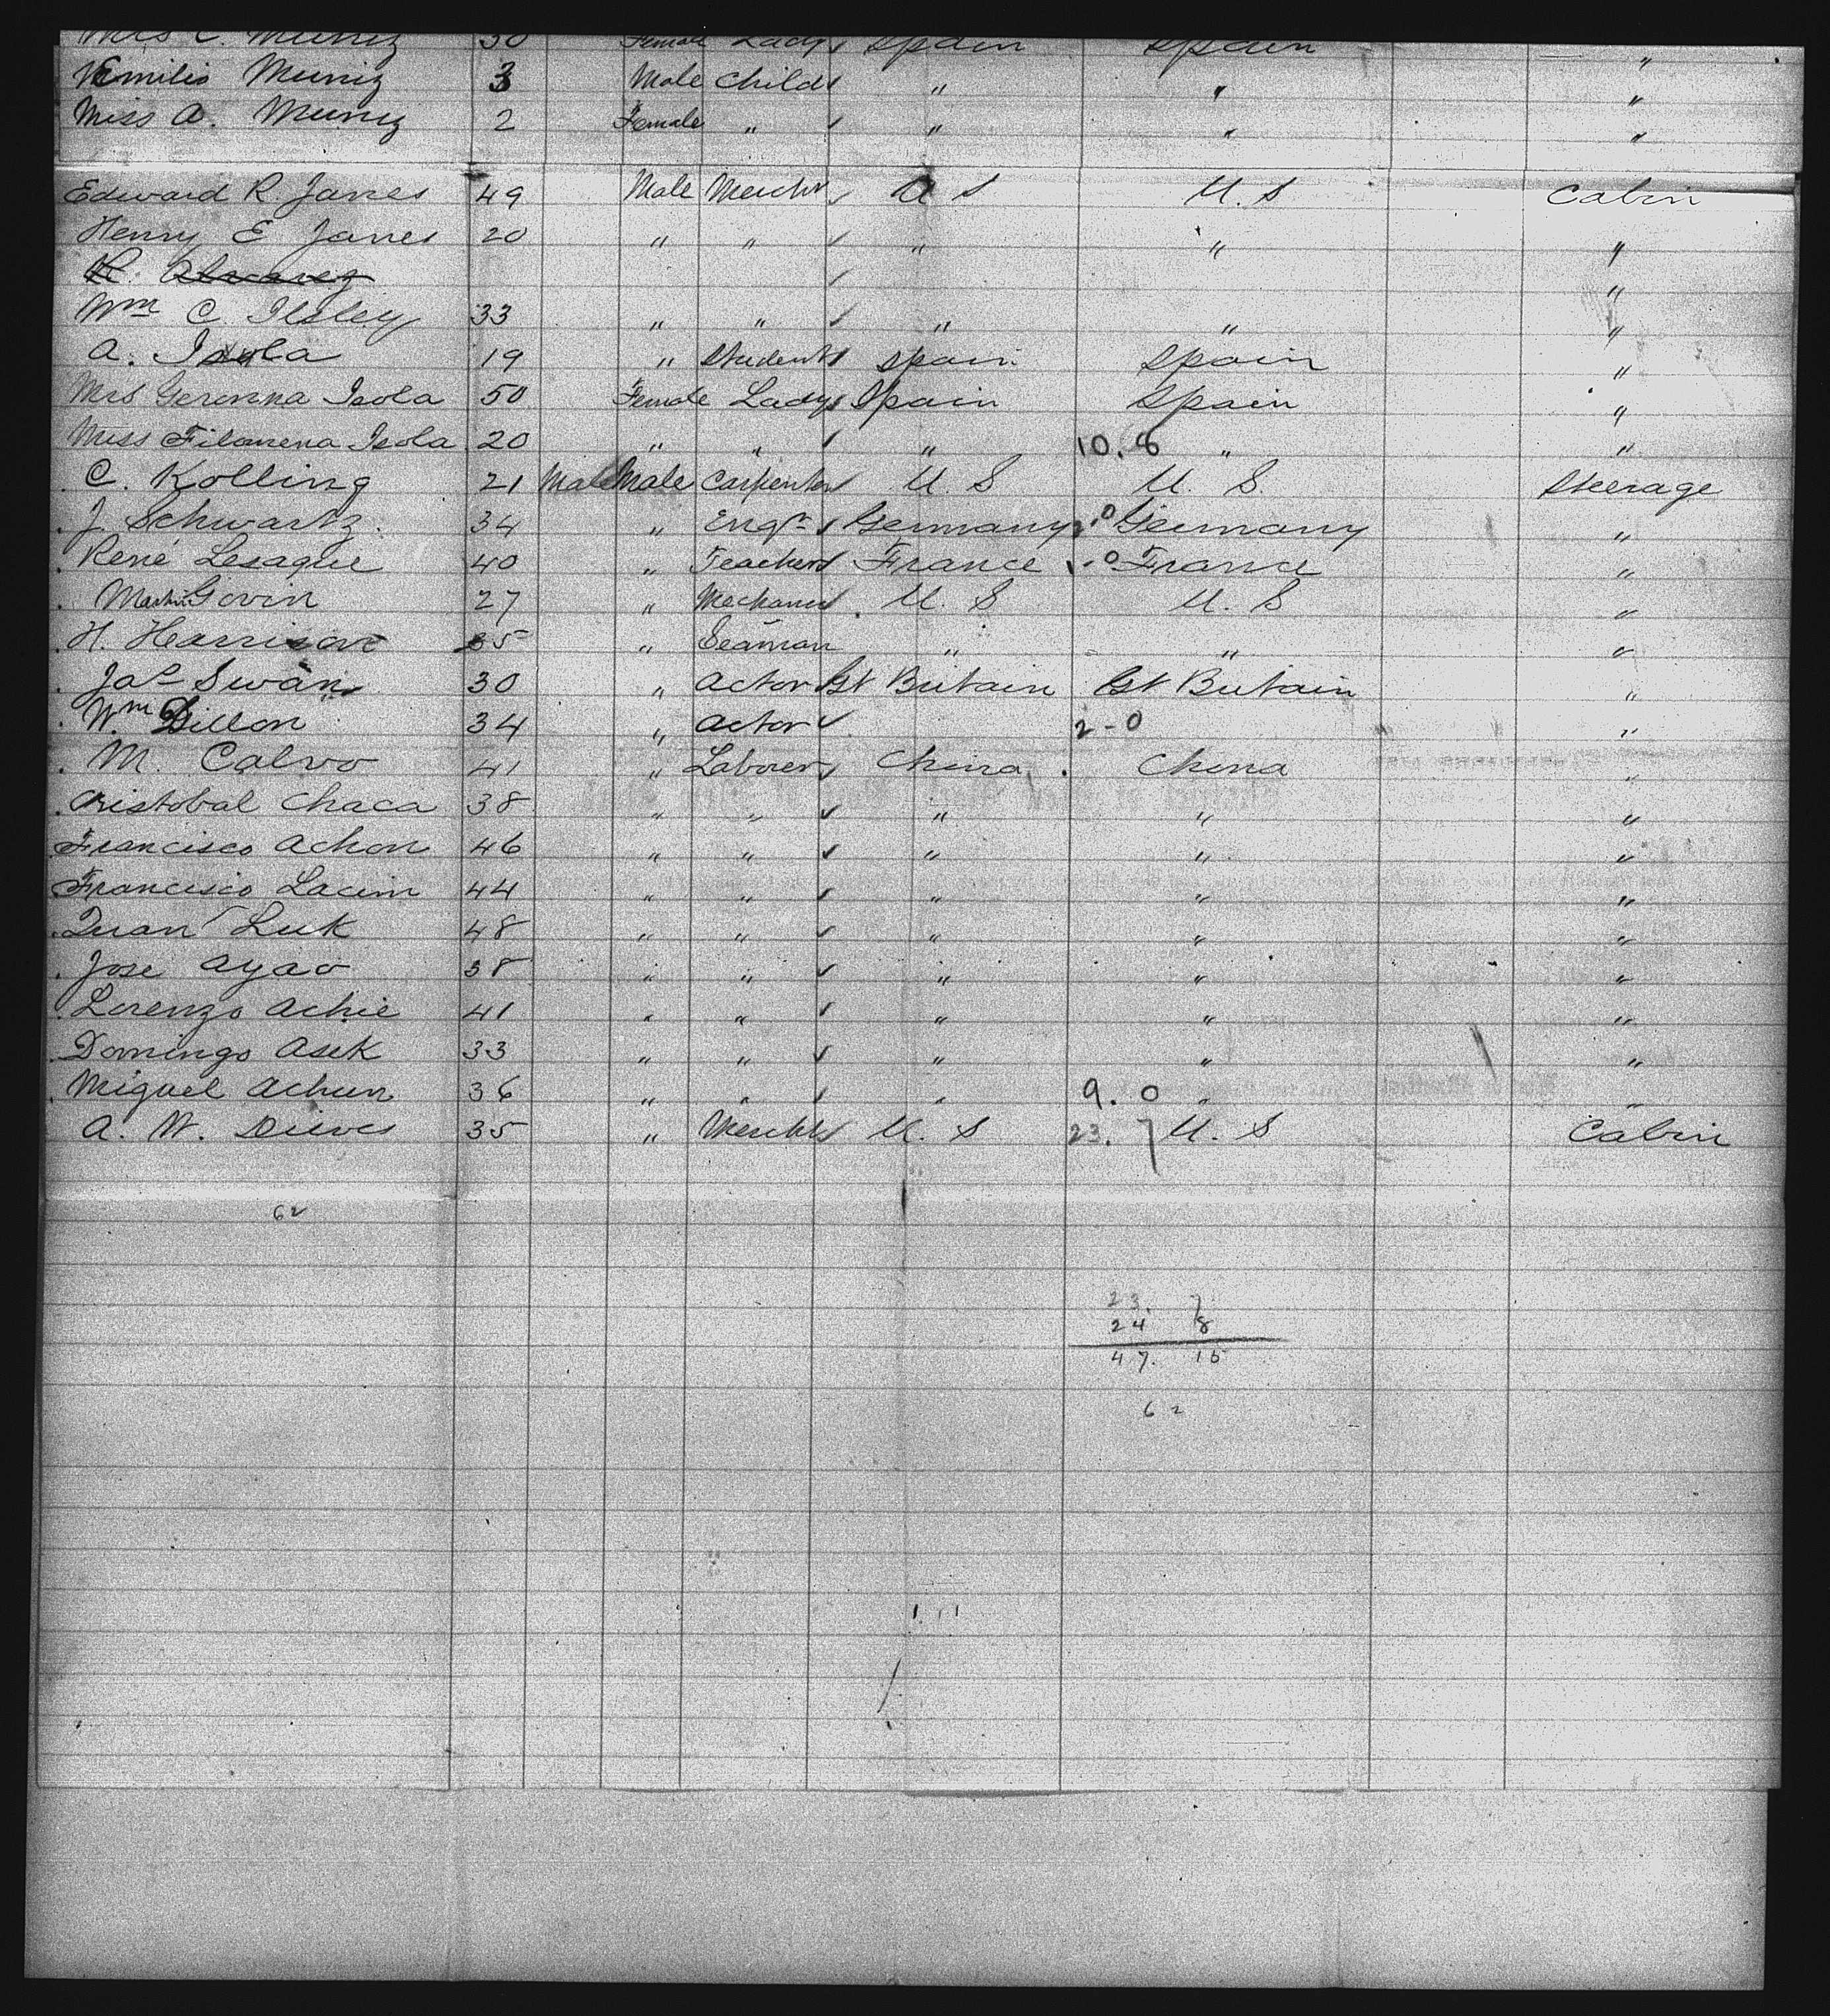 Mrs C. Muniz 30 Female Lady Spain Spain "
Emilio Muniz 3 Male Child " " "
Miss A. Muniz 2 Female " " " "
Edward R. Janes 49 Male Mercht U S U. S Cabin
Henry E Janes 20 " " " " "
R. Alvarez "
Wm C. Ilsley 33 " " " " "
A. Isola 19 " Student Spain Spain "
Mrs Geronna Isola 50 Female Lady Spain Spain "
Miss Filomena Isola 20 " " " 10. 8 " "
C. Kolling 21 Male Male Carpenter U. S U. S. Steerage
J. Schwartz 34 " Engr Germany Germany "
René Lesague 40 " Teacher France France "
Martin Govin 27 " Mechanic U. S U. S "
H. Harrison 35 " Seaman " " "
Jas Swan 30 " Actor Gt Britain Gt Britain "
Wm Dillon 34 " Actor 2-0 "
M. Calvo 41 " Laborer China China "
Cristobal Chaca 38 " " " " "
Francisco Achon 46 " " " " "
Francisco Lacim 44 " " " " "
Juan Luk 48 " " " " "
Jose Ayao 38 " " " " "
Lorenzo Achie 41 " " " " "
Domingo Asek 33 " " " " "
Miguel Achun 36 " " " 9. 0 " "
A. W. 35 " Mercht U. S 23. 7 U. S Cabin
62
23. 7
24 8
47. 15
62